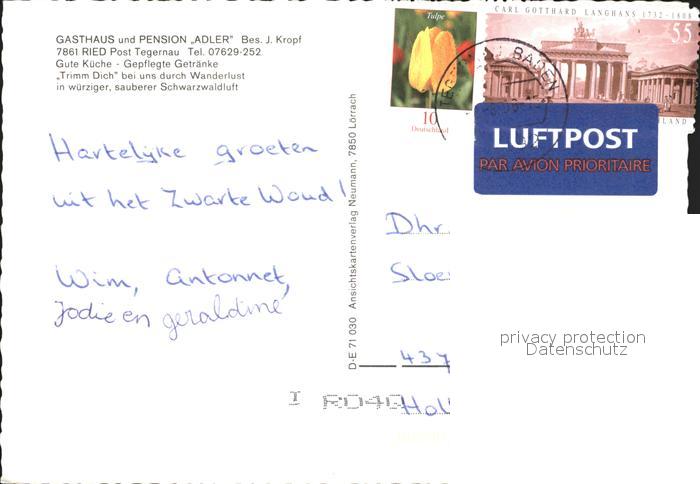 GASTHAUS und PENSION „ADLER" Bes. J. Kropf
7861 RIED Post Tegernau Tel. 07629-252
Gute Küche - Gepflegte Getränke
„Trimm Dich" bei uns durch Wanderlust
in würziger, sauberer Schwarzwaldluft
Hartelijke groeten
uit het Zwarte Woud!
Wim, Antonnet,
Jodie en geraldine
D-E 71 030 Ansichtskartenverlag Neumann, 7850 Lörrach
Tulpe
10
Deutschland
CARL GOTTHARD LANGHANS 1732-1808
55
BADEN
LUFTPOST
PAR AVION PRIORITAIRE
Dhr.
Sloe
437
Hol
privacy protection
Datenschutz